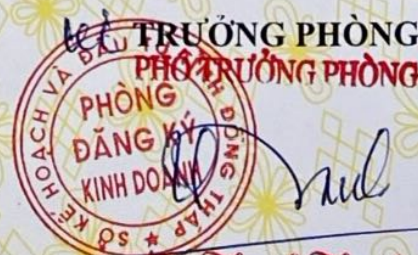 TRƯỞNG PHÒNG
PHÓ TRƯỞNG PHÒNG
SỞ KẾ HOẠCH VÀ ĐẦU TƯ TỈNH ĐỒNG THÁP
PHÒNG
ĐĂNG KÝ
KINH DOANH